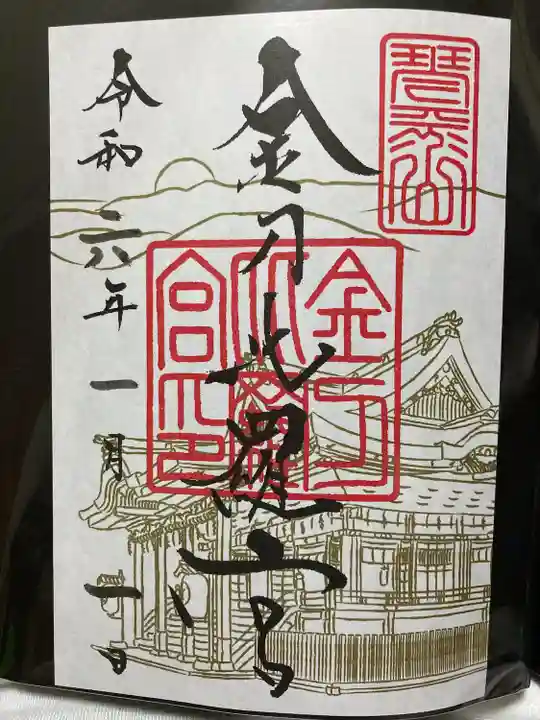 琴平山
金刀比羅宮
金刀
比羅
宮印
令和六年一月一日